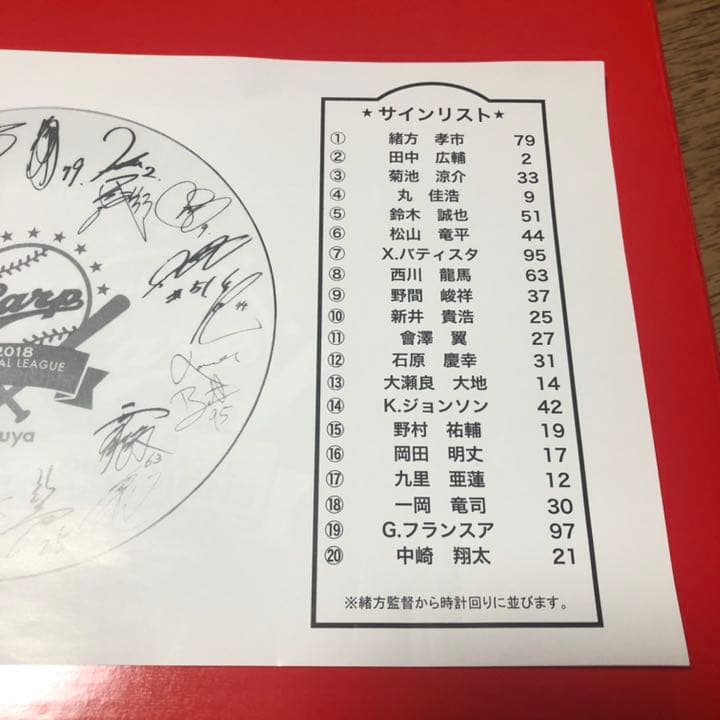 ★ サインリスト ★
① 緒方 孝市 79
② 田中 広輔 2
③ 菊池 涼介 33
④ 丸 佳浩 9
⑤ 鈴木 誠也 51
⑥ 松山 竜平 44
⑦ X.バティスタ 95
⑧ 西川 龍馬 63
⑨ 野間 峻祥 37
⑩ 新井 貴浩 25
⑪ 會澤 翼 27
⑫ 石原 慶幸 31
⑬ 大瀬良 大地 14
⑭ K.ジョンソン 42
⑮ 野村 祐輔 19
⑯ 岡田 明丈 17
⑰ 九里 亜蓮 12
⑱ 一岡 竜司 30
⑲ G.フランスア 97
⑳ 中崎 翔太 21
※緒方監督から時計回りに並びます。
79.
2.
#51
arp
2018
AL LEAGUE
uya
95
63
25